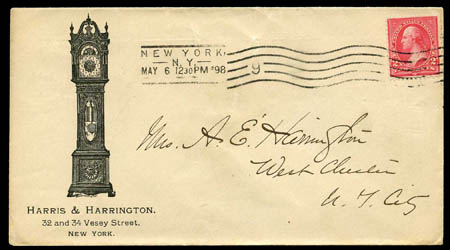 NEW YORK,
N.Y.
MAY 6 1230PM '98
9
Mrs. A. E. Harrington
West Chester
N. Y. City
HARRIS & HARRINGTON.
32 and 34 Vesey Street,
NEW YORK.